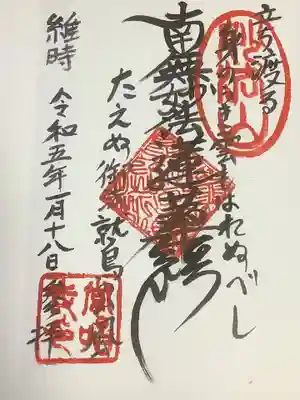 立渡る
身のうき雲もはれぬべし
南無妙法蓮華経
たえぬ御
鷲
山風
維時 令和五年一月十八日